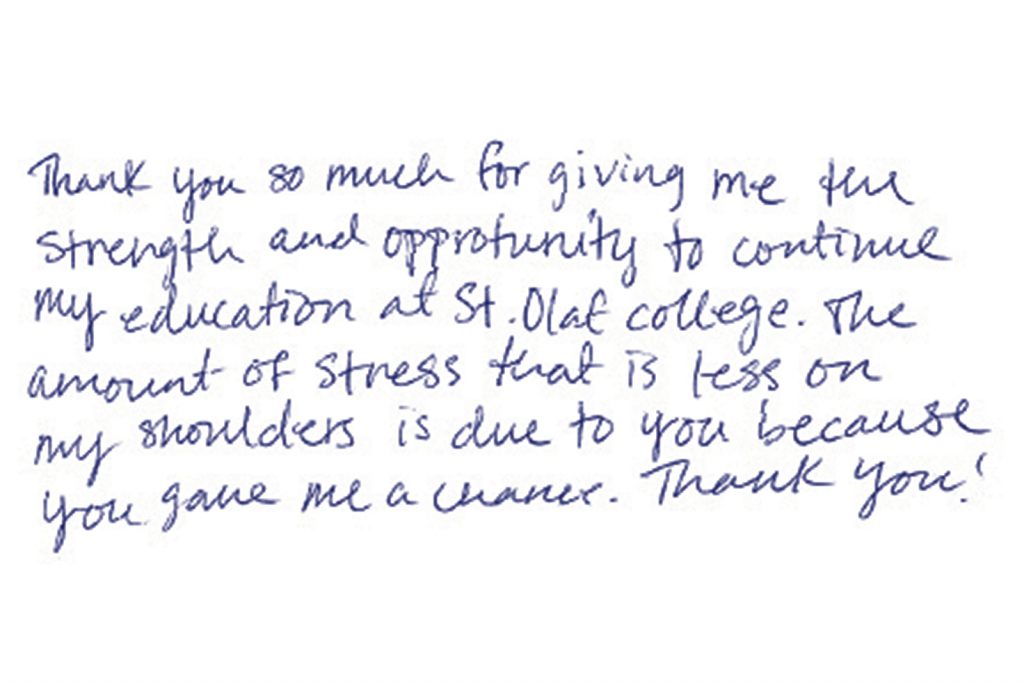 Thank you so much for giving me the
strength and opprotunity to continue
my education at St. Olaf college. The
amount of stress that is less on
my shoulders is due to you because
you gave me a chance. Thank you!